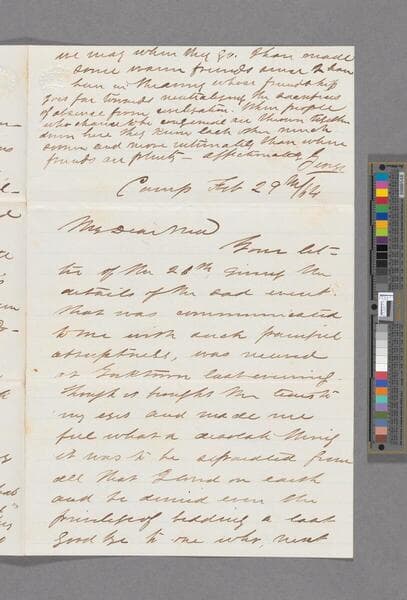 we may when they go. I have made
some warm friends since I have
been in the army whose friendship
goes far towards neutralizing the sacrifices
of absence from civilization. When people
who chance to be congenial are thrown together
down here they know each other much
sooner and more intimately than where
friends are plenty — affectionately George
Camp Feb 29th/64
My Dear
Your let-
ter of the 20th, giving the
details of the sad event
that was communicated
to me with such painful
abruptness, was received
at last evening.
Though it brought the tears to
my eyes and made me
feel what a desolate thing
it was to be separated from
all that I loved on earth
and be denied even the
privilege of bidding a last
good bye to one who, next